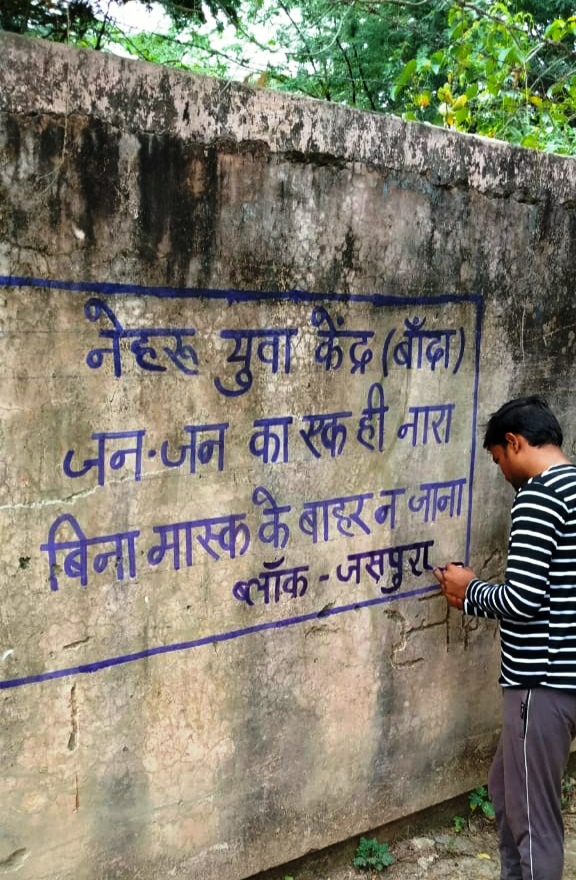 नेहरू युवा केंद्र (बाँदा)
जन-जन का एक ही नारा
बिना मास्क के बाहर न जाना
ब्लॉक - जसपुरा